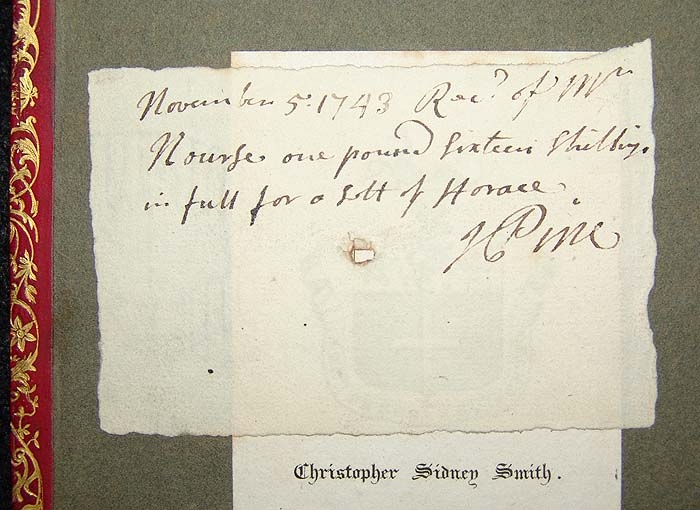 November 5. 1743 Rec.d of Mr
Nourse one pound Sixteen Shillings
in full for a Sett of Horace
J Pine
Christopher Sidney Smith.